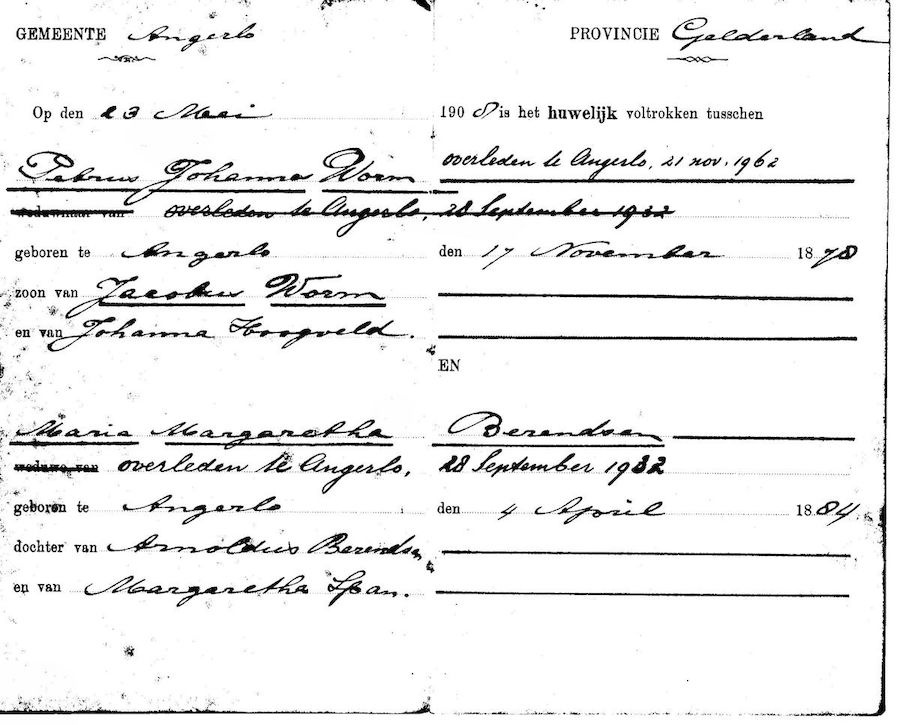 GEMEENTE Angerlo PROVINCIE Gelderland
Op den 23 Mei 1908 is het huwelijk voltrokken tusschen
Petrus Johannes Worm overleden te Angerlo, 21 nov. 1962
weduwnaar van overleden te Angerlo, 28 September 1932
geboren te Angerlo den 17 November 1878
zoon van Jacobus Worm
en van Johanna Hoogveld.
EN
Maria Margaretha Berendsen
weduwe van overleden te Angerlo, 28 September 1932
geboren te Angerlo den 4 April 1884
dochter van Arnoldus Berendsen
en van Margaretha Span.